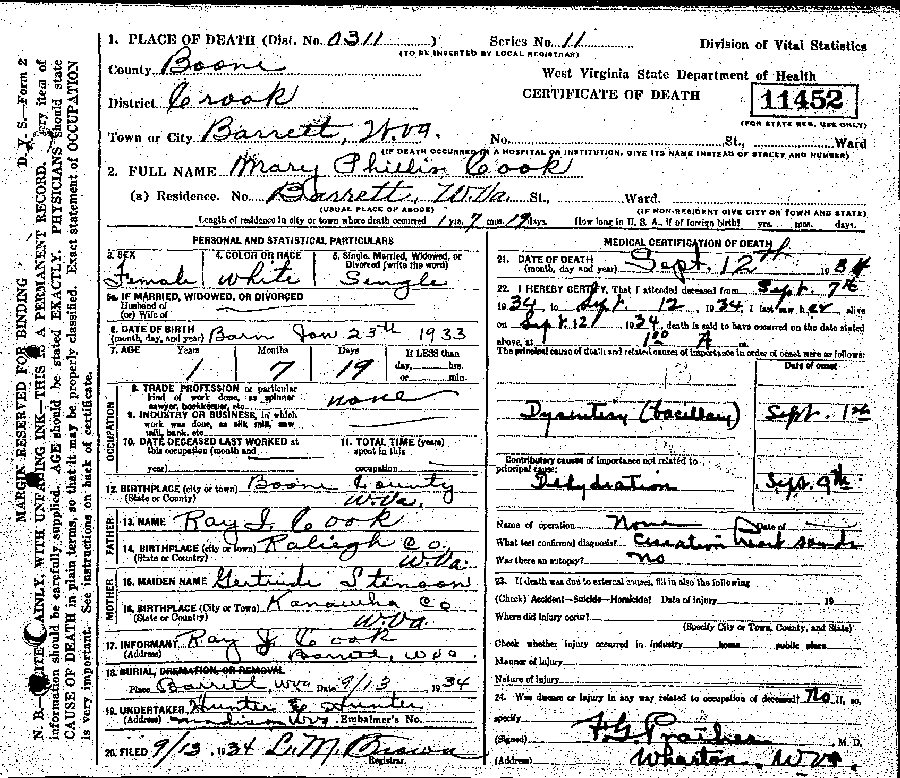 1. PLACE OF DEATH (Dist. No. 0311 ) Series No. 11 Division of Vital Statistics
(TO BE INSERTED BY LOCAL REGISTRAR)
County Boone
West Virginia State Department of Health
District Crook
CERTIFICATE OF DEATH 11452
(FOR STATE REG. USE ONLY)
Town or City Barrett, W.Va. No. St., Ward
(IF DEATH OCCURRED IN A HOSPITAL OR INSTITUTION, GIVE ITS NAME INSTEAD OF STREET AND NUMBER)
2. FULL NAME Mary Phillis Cook
(a) Residence. No. Barrett, W.Va. St., Ward.
(USUAL PLACE OF ABODE) (IF NON-RESIDENT GIVE CITY OR TOWN AND STATE)
Length of residence in city or town where death occurred 1 yrs. 7 mos. 19 days. How long in U. S. A., if of foreign birth? yrs. mos. days.
MARGIN RESERVED FOR BINDING D. V. S.—Form 2
N. B.—WRITE PLAINLY, WITH UNFADING INK—THIS IS A PERMANENT RECORD. Every item of
information should be carefully supplied. AGE should be stated EXACTLY. PHYSICIANS should state
CAUSE OF DEATH in plain terms, so that it may be properly classified. Exact statement of OCCUPATION
is very important. See instructions on back of certificate.
PERSONAL AND STATISTICAL PARTICULARS
3. SEX 4. COLOR OR RACE 5. Single, Married, Widowed, or
Divorced (write the word)
Female White Single
5a. IF MARRIED, WIDOWED, OR DIVORCED
Husband of
(or) Wife of
6. DATE OF BIRTH
(month, day, and year) Born Jan 23th 1933
7. AGE Years Months Days If LESS than
1 7 19 day, hrs.
or min.
OCCUPATION
8. TRADE PROFESSION or particular
kind of work done, as spinner
sawyer, bookkeeper, etc. none
9. INDUSTRY OR BUSINESS, in which
work was done, as silk mill, saw
mill, bank, etc.
10. DATE DECEASED LAST WORKED at
this occupation (month and
year)
11. TOTAL TIME (years)
spent in this
occupation
12. BIRTHPLACE (city or town) Boone County
(State or County) W.Va.
FATHER
13. NAME Ray J. Cook
14. BIRTHPLACE (city or town) Raliegh Co
(State or County) W.Va.
MOTHER
15. MAIDEN NAME Gertrude Stenson
16. BIRTHPLACE (City or Town) Kanawha Co
(State or Country) W.Va.
17. INFORMANT Ray J. Cook
(Address) Barrett, W.Va.
18. BURIAL, CREMATION, OR REMOVAL
Place Barrett, W.Va Date 9/13 1934
19. UNDERTAKER Hunter & Hunter
(Address) Madison W.Va. Embalmer's No.
20. FILED 9/13, 1934 L. M. Brown
Registrar.
MEDICAL CERTIFICATION OF DEATH
21. DATE OF DEATH
(month, day and year) Sept. 12th 1934
22. I HEREBY CERTIFY, That I attended deceased from Sept. 7th
1934 to Sept. 12, 1934, I last saw her alive
on Sept 12, 1934, death is said to have occurred on the date stated
above, at 1:00 A m.
The principal cause of death and related causes of importance in order of onset were as follows:
Date of onset
Dysentery (bacillary) Sept. 1st
Contributory causes of importance not related to
principal cause:
Dehydration Sept. 9th
Name of operation None Date of
What test confirmed diagnosis? heart sounds
Was there an autopsy? No
23. If death was due to external causes, fill in also the following
(Check) Accident—Suicide—Homicide? Date of injury 19
Where did injury occur?
(Specify City or Town, County, and State)
Check whether injury occurred in industry home public place
Manner of Injury
Nature of injury
24. Was disease or injury in any way related to occupation of deceased? No If, so,
specify
(Signed) F G Prather M. D.
(Address) Wharton, W.Va.